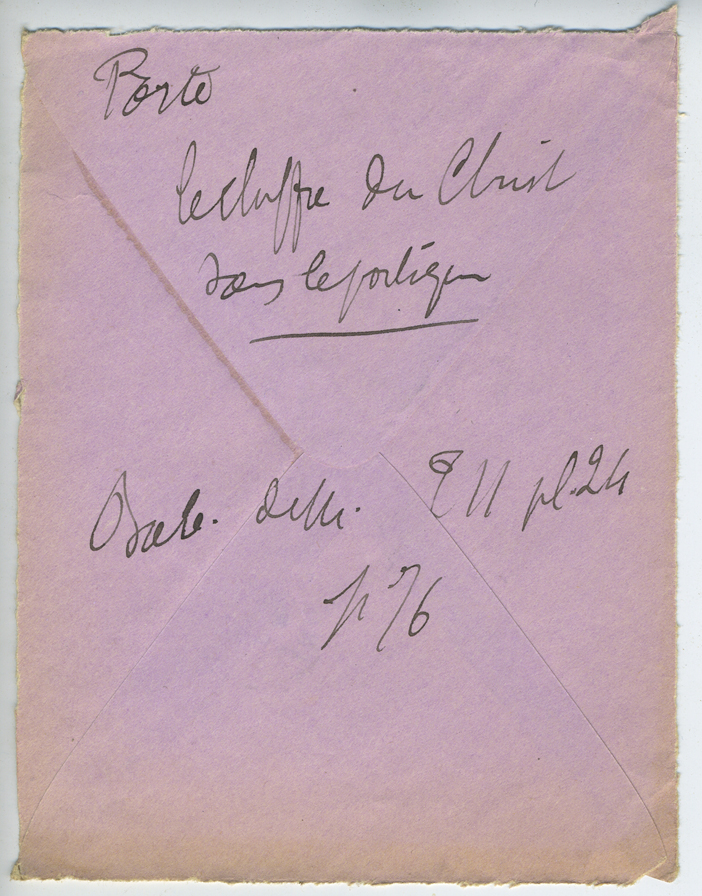 Porte
le chiffre du Christ
dans le portique
Dale. T II pl. 24
p 76